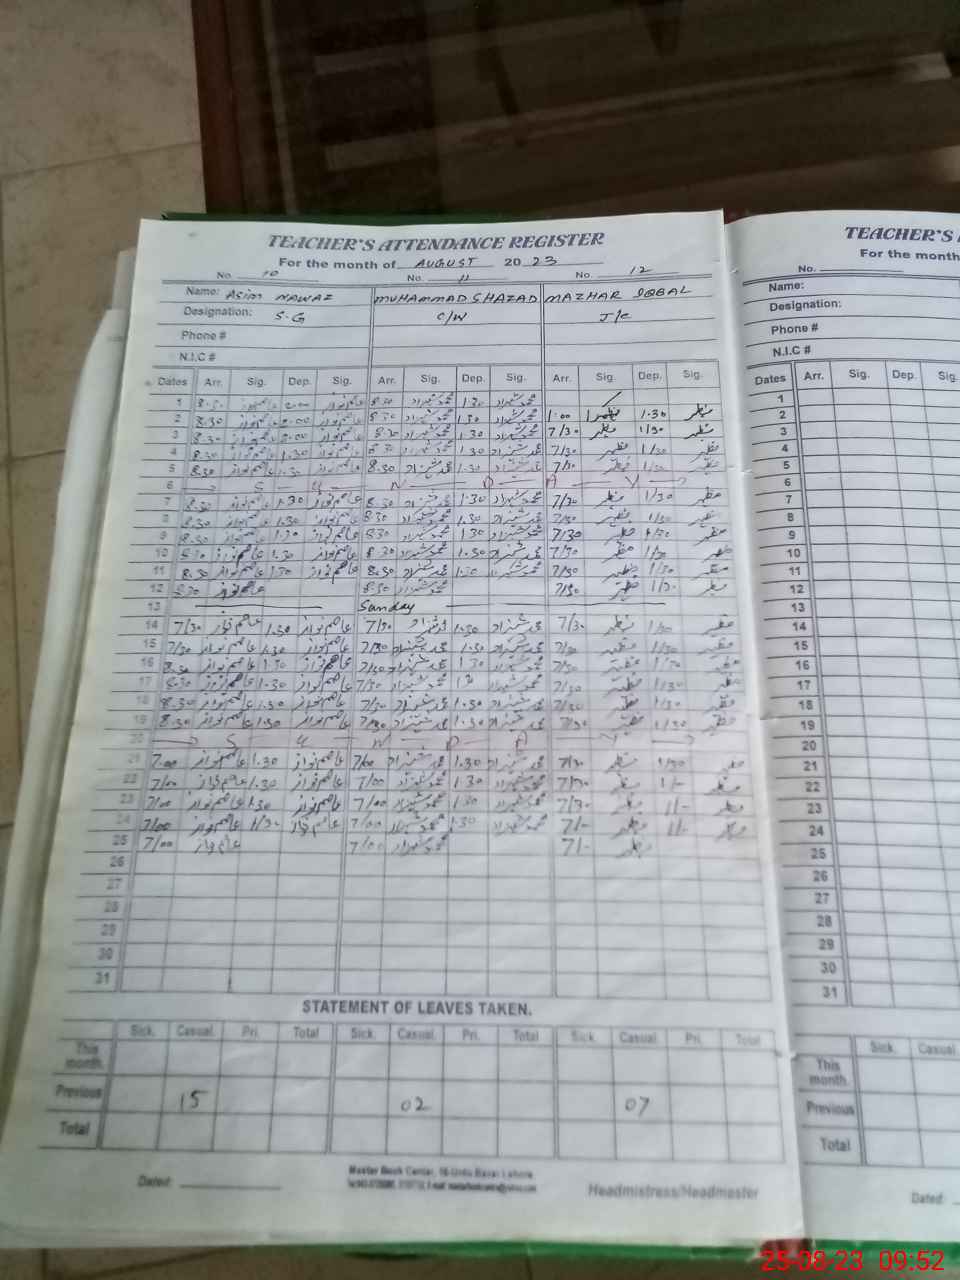 TEACHER'S ATTENDANCE REGISTER
For the month of AUGUST 2023
No. 10 No. 11 No. 12
Name: Asim NAWAZ MUHAMMAD SHAZAD MAZHAR IQBAL
Designation: S.G C/W J/C
Phone #
N.I.C #
Dates Arr. Sig. Dep. Sig. Arr. Sig. Dep. Sig. Arr. Sig. Dep. Sig.
1 8.30 عاصم نواز 2.00 عاصم نواز 8.30 محمد شہزاد 1.30 محمد شہزاد
2 8.30 عاصم نواز 2.00 عاصم نواز 8.30 محمد شہزاد 1.30 محمد شہزاد 1:00 مظہر 1.30 مظہر
3 8.30 عاصم نواز 2.00 عاصم نواز 8.30 محمد شہزاد 1.30 محمد شہزاد 7/30 مظہر 1/30 مظہر
4 8.30 عاصم نواز 1.30 عاصم نواز 8.30 محمد شہزاد 1.30 محمد شہزاد 7/30 مظہر 1/30 مظہر
5 8.30 عاصم نواز 1.30 عاصم نواز 8.30 محمد شہزاد 1.30 محمد شہزاد 7/30 مظہر 1/30 مظہر
6 S U N D A Y
7 8.30 عاصم نواز 1.30 عاصم نواز 8.30 محمد شہزاد 1.30 محمد شہزاد 7/30 مظہر 1/30 مظہر
8 8.30 عاصم نواز 1.30 عاصم نواز 8.30 محمد شہزاد 1.30 محمد شہزاد 7/30 مظہر 1/30 مظہر
9 8.30 عاصم نواز 1.30 عاصم نواز 8.30 محمد شہزاد 1.30 محمد شہزاد 7/30 مظہر 1/30 مظہر
10 8.30 عاصم نواز 1.30 عاصم نواز 8.30 محمد شہزاد 1.30 محمد شہزاد 7/30 مظہر 1/30 مظہر
11 8.30 عاصم نواز 1.30 عاصم نواز 8.30 محمد شہزاد 1.30 محمد شہزاد 7/30 مظہر 1/30 مظہر
12 8.30 عاصم نواز 8.30 محمد شہزاد 7/30 مظہر 1/30 مظہر
13 Sunday
14 7/30 عاصم نواز 1.30 عاصم نواز 7/30 محمد شہزاد 1.30 محمد شہزاد 7/30 مظہر 1/30 مظہر
15 7/30 عاصم نواز 1.30 عاصم نواز 7/30 محمد شہزاد 1.30 محمد شہزاد 7/30 مظہر 1/30 مظہر
16 8.30 عاصم نواز 1.30 عاصم نواز 7/30 محمد شہزاد 1.30 محمد شہزاد 7/30 مظہر 1/30 مظہر
17 8.30 عاصم نواز 1.30 عاصم نواز 7/30 محمد شہزاد محمد شہزاد 7/30 مظہر 1/30 مظہر
18 8.30 عاصم نواز 1.30 عاصم نواز 7/30 محمد شہزاد 1.30 محمد شہزاد 7/30 مظہر 1/30 مظہر
19 8.30 عاصم نواز 1.30 عاصم نواز 7/30 محمد شہزاد 1.30 محمد شہزاد 7/30 مظہر 1/30 مظہر
20 S U N D A Y
21 7.00 عاصم نواز 1.30 عاصم نواز 7/00 محمد شہزاد 1.30 محمد شہزاد 7/30 مظہر 1/30 مظہر
22 7/00 عاصم نواز 1.30 عاصم نواز 7/00 محمد شہزاد 1.30 محمد شہزاد 7/30 مظہر 1/- مظہر
23 7/00 عاصم نواز 1.30 عاصم نواز 7/00 محمد شہزاد 1.30 محمد شہزاد 7/30 مظہر 1/- مظہر
24 7/00 عاصم نواز 1/30 عاصم نواز 7/00 محمد شہزاد 1.30 محمد شہزاد 7/- مظہر 1/- مظہر
25 7/00 عاصم نواز 7/00 محمد شہزاد 7/- مظہر
26
27
28
29
30
31
STATEMENT OF LEAVES TAKEN.
Sick. Casual. Pri. Total Sick. Casual. Pri. Total Sick. Casual. Pri. Total
This month.
Previous 15 02 07
Total
Master Book Center, 16-Urdu Bazar Lahore
Dated: Headmistress/Headmaster
TEACHER'S
For the month
No.
Name:
Designation:
Phone #
N.I.C #
Dates Arr. Sig. Dep. Sig.
1
2
3
4
5
6
7
8
9
10
11
12
13
14
15
16
17
18
19
20
21
22
23
24
25
26
27
28
29
30
31
Sick. Casual
This month
Previous
Total
Dated:
25-08-23 09:52